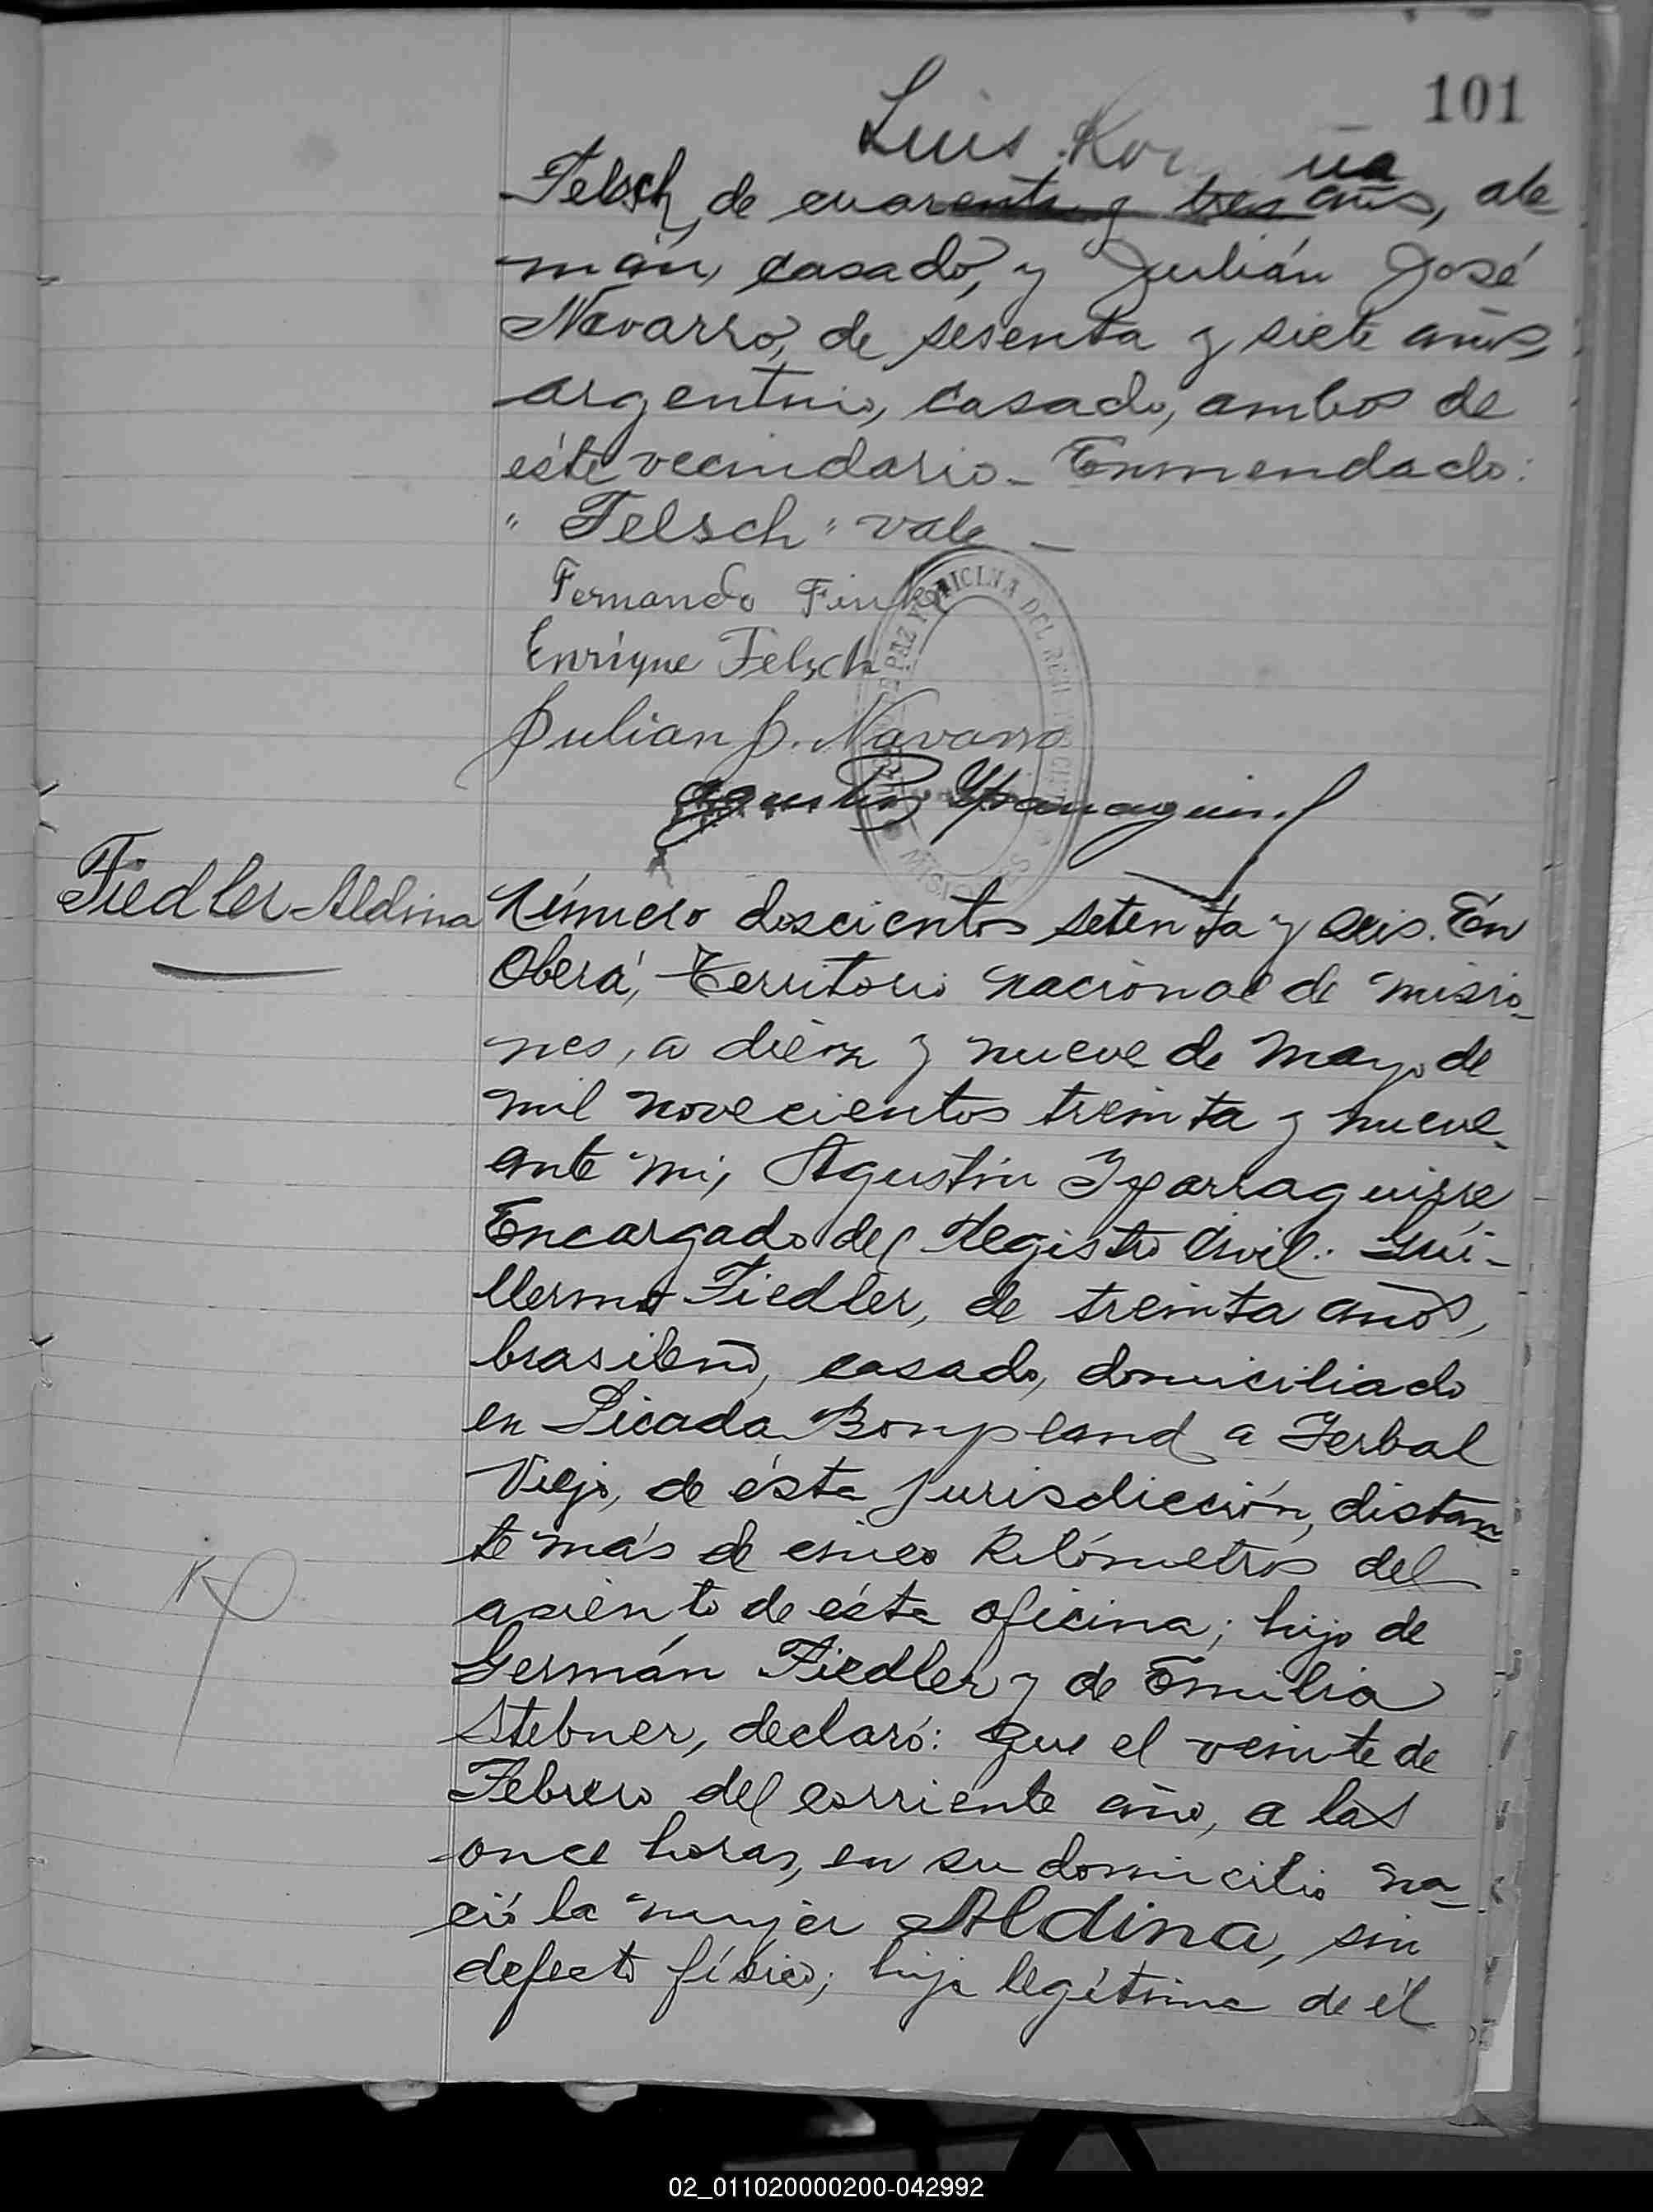 101
Luis
Felsch, de cuarenta y tres años, ale
mán, casado, y Julián José
Navarro, de sesenta y siete años,
argentino, casado, ambos de
éste vecindario_ Enmendado:
" Felsch " vale_
Fernando Finke
Enrique Felsch
Julian J. Navarro
Fiedler Aldina
Número doscientos setenta y seis. En
Oberá, Territorio nacional de misio_
nes, a diez y nueve de Mayo de
mil novecientos treinta y nueve_
ante mi, Agustín Yparraguirre
Encargado del Registro Civil: Gui-
llermo Fiedler, de treinta años,
brasileño, casado, domiciliado
en Picada Bonpland a Yerbal
Viejo, de ésta jurisdicción, distan
te más de cinco Kilómetros del
asiento de ésta oficina; hijo de
Germán Fiedler y de Emilia
Stebner, declaró: Que el veinte de
Febrero del corriente año, a las
once horas, en su domicilio na_
ció la mujer Aldina, sin
defecto físico; hija legítima de él
02_011020000200-042992